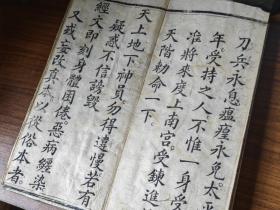 刀兵永息。瘟瘴永免。太平
年。受持之人。不惟一身受
准將來度上南宮。受鍊進
天階勅命一下。
天上地下神員。勿得違慢。若有
疑惑不信謗毀
經文。即刻身體困倦。惡病纏染
又或妄改真本。以深俗本者。